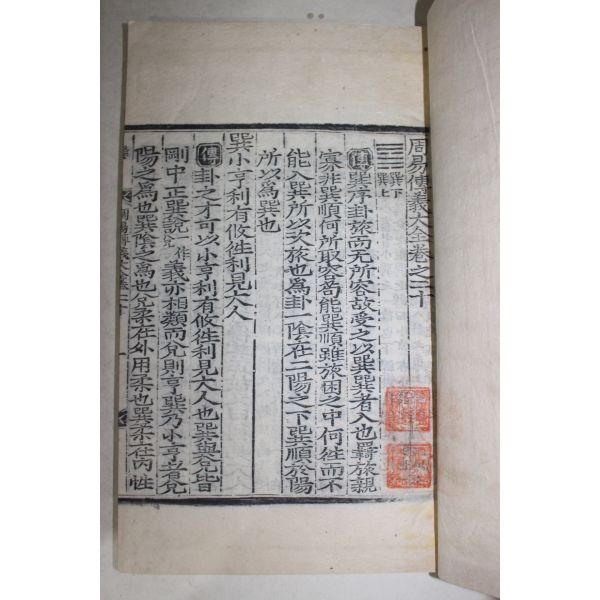 周易傳義大全卷之二十
巽下
巽上
傳 巽序卦旅而无所容故受之以巽巽者入也羈旅親
寡非巽順何所取容苟能巽順雖旅困之中何往而不
能入巽所以次旅也爲卦一陰在二陽之下巽順於陽
所以爲巽也
巽小亨利有攸往利見大人
傳 卦之才可以小亨利有攸往利見大人也巽與兌皆
剛中正巽說 作 義亦相類而兌則亨巽乃小亨者兌
陽之爲也巽陰之爲也兌柔在外用柔也巽柔在內性
周易傳義大全卷二十